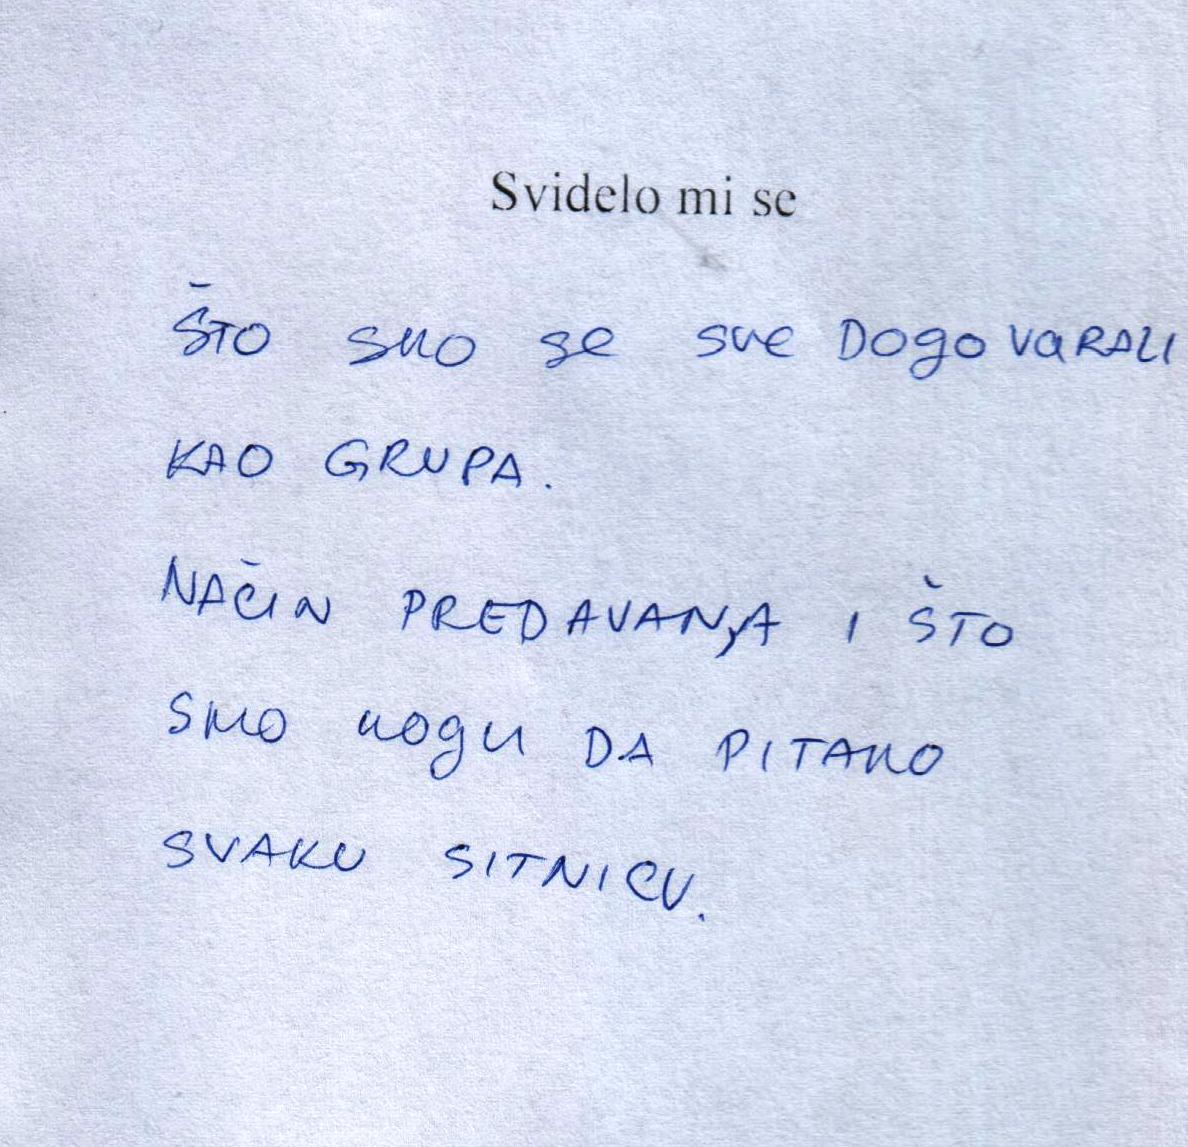 Svidelo mi se
ŠTO SMO SE SVE DOGOVARALI
KAO GRUPA.
NAČIN PREDAVANJA I ŠTO
SMO MOGLI DA PITAMO
SVAKU SITNICU.